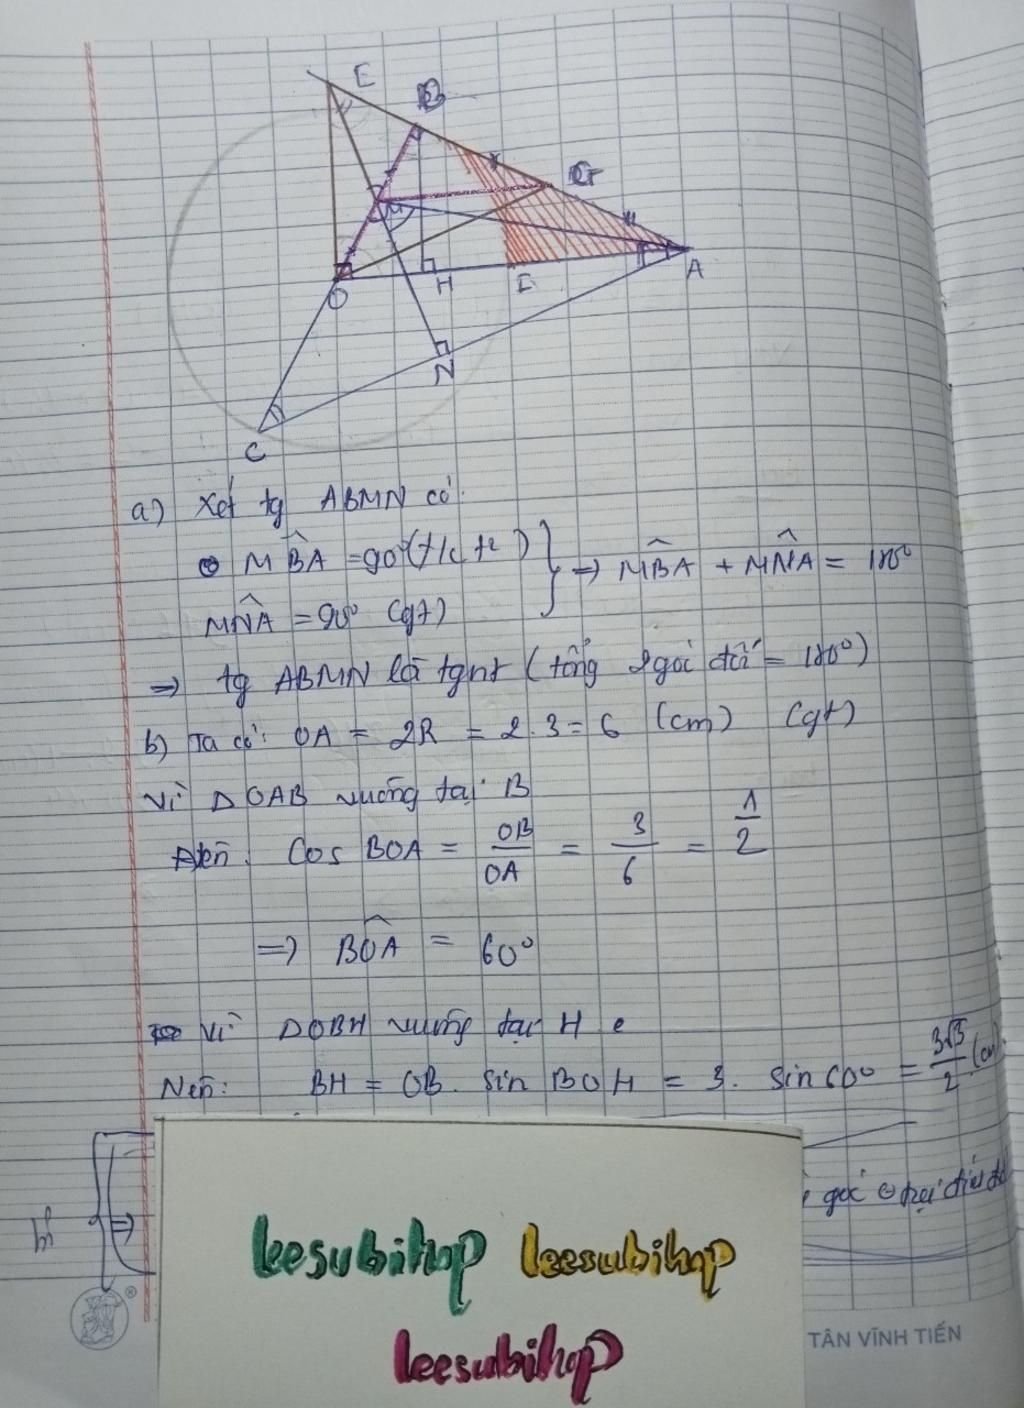 E
B
G
M
O
H
I
A
N
C
a) Xét tg ABMN có:
MBA = 90° (t/c t²)
MNA = 90° (gt)
} => MBA + MNA = 180°
=> tg ABMN là tgnt (tổng 2 góc đối = 180°)
b) Ta có: OA = 2R = 2.3 = 6 (cm) (gt)
Vì ΔOAB vuông tại B
Nên: Cos BOA = OB/OA = 3/6 = 1/2
=> BOA = 60°
Vì ΔOBH vuông tại H
Nên: BH = OB. Sin BOH = 3. Sin 60° = 3√3/2 (cm)
=>
góc
leesubihop leesubihop
leesubihop
TÂN VĨNH TIẾN
®